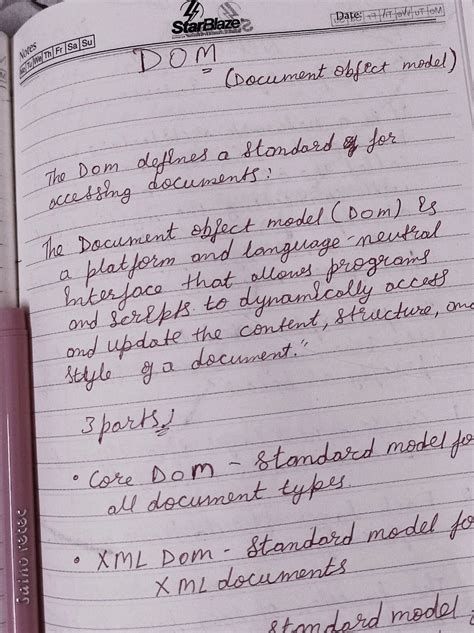 StarBlaze
Notes
Mo Tu We Th Fr Sa Su
Date:
DOM
(Document object model)
The Dom defines a standard for
accessing documents:
The Document object model (Dom) is
a platform and language-neutral
Interface that allows programs
and scripts to dynamically access
and update the content, structure, and
style of a document."
3 parts:
• Core Dom - standard model for
all document types.
• XML Dom - standard model fo
XML documents
standard model